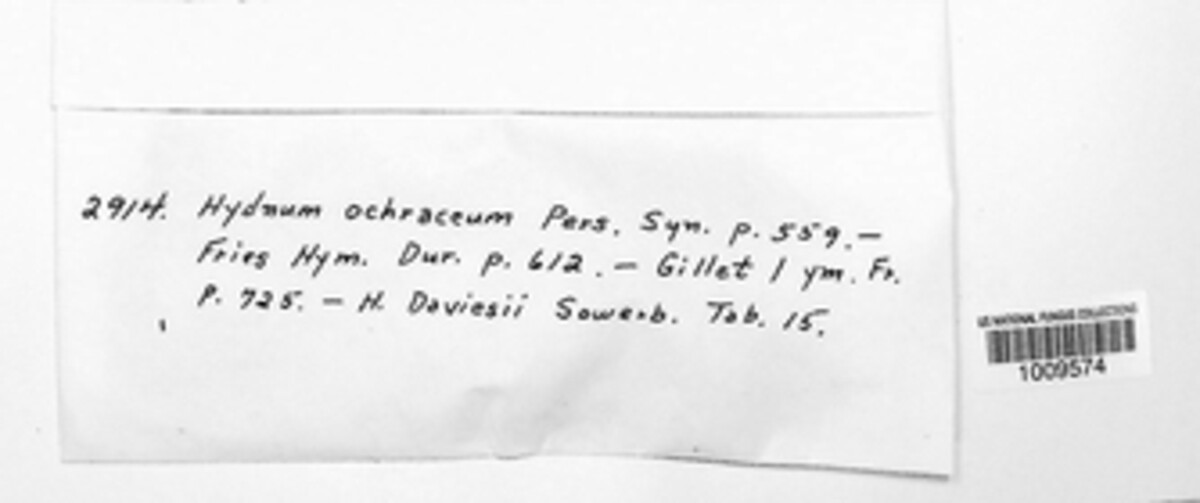 2914. Hydnum ochraceum Pers. Syn. p. 559. —
Fries Hym. Dur. p. 612. — Gillet l ym. Fr.
p. 725. — H. Daviesii Sowerb. Tab. 15.
US NATIONAL FUNGUS COLLECTIONS
1009574